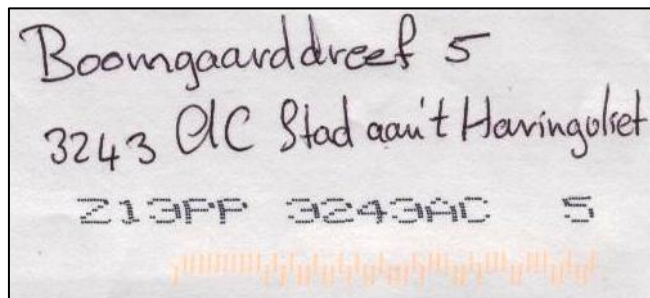 Boomgaarddreef 5
3243 AC Stad aan't Haringvliet
Z13PP 3243AC 5